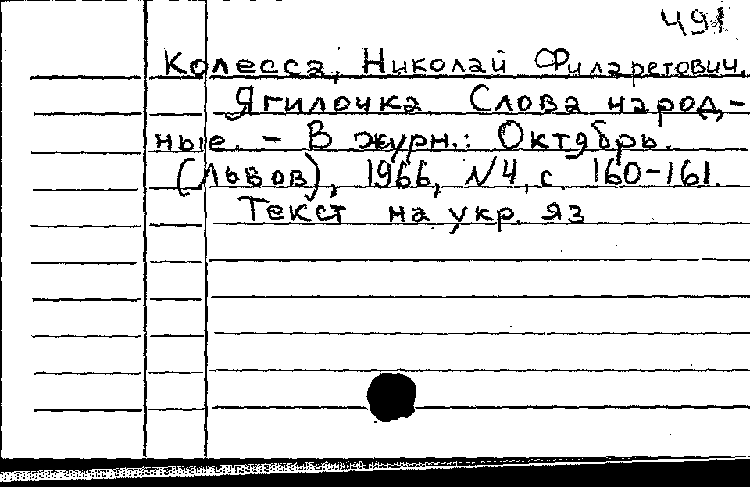 491
Колесса, Николай Филаретович.
Ягилочка Слова народ-
ные. - В журн.: Октябрь.
(Львов), 1966, №4, с. 160-161.
Текст на укр. яз